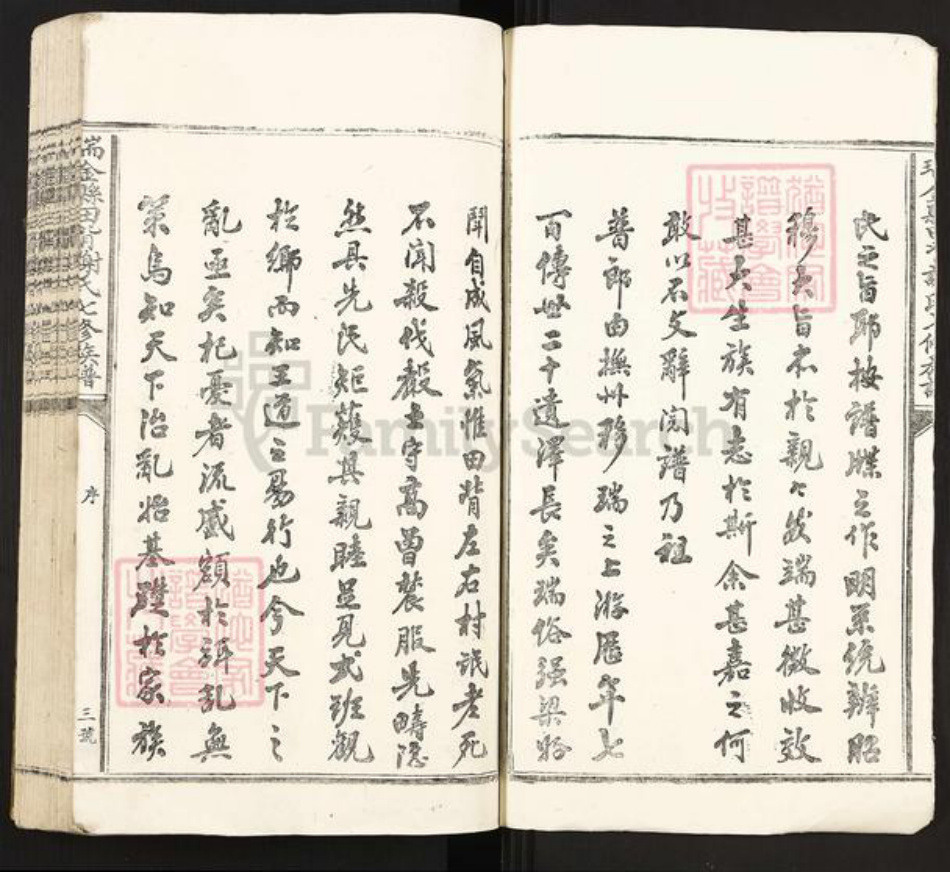 氏之旨耶按譜牒之作明系統辨昭
穆大旨不於親々發端甚微收效
甚大生族有志於斯余甚嘉之何
敢以不文辭閱譜乃祖
普郎由撫州移瑞之上游歷年七
百傳世二十遺澤長矣瑞俗强梁好
鬭自成風氣惟田背左右村氓老死
不聞殺伐聲士守高曾農服先疇隱
然具先民矩矱其親睦足見式班觀
於鄉而知王道之易行也今天下之
亂亟矣杞憂者流蹙額於弭亂無
策烏知天下治亂始基礎於家族
瑞金縣田背謝氏七修族譜
序
三號
FamilySearch